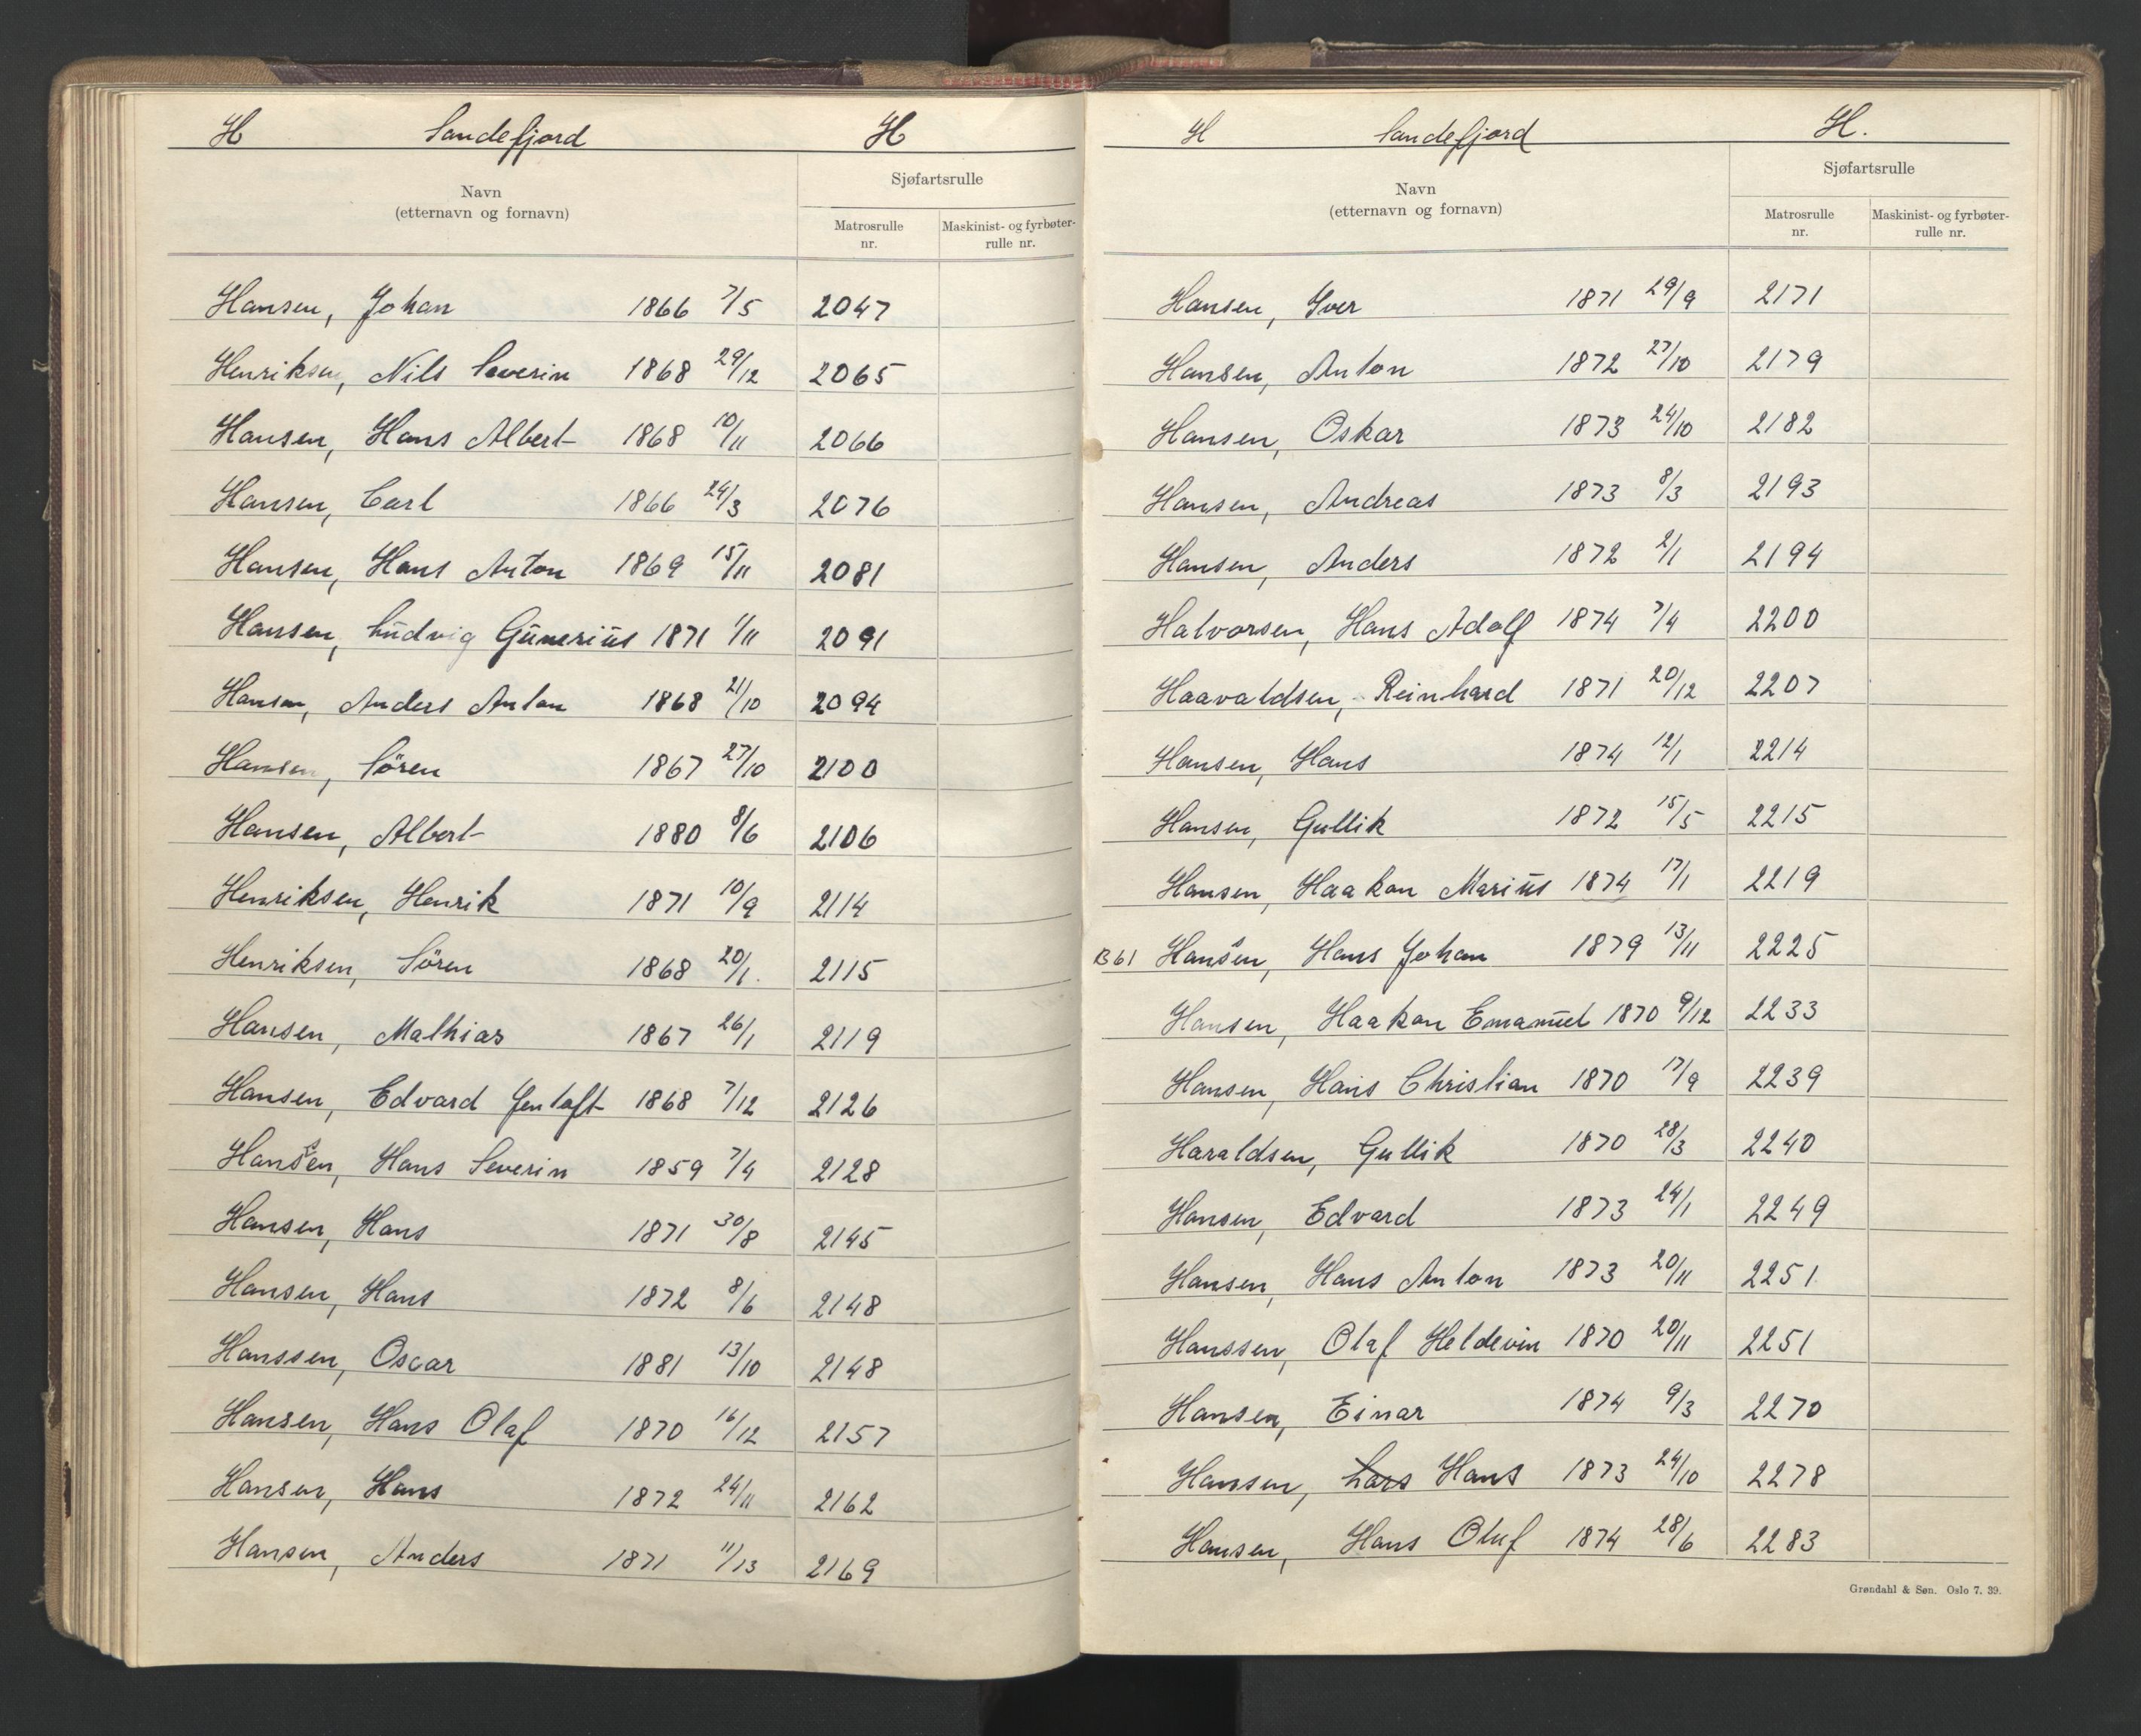 H Sandefjord H
Sjøfartsrulle
Navn
(etternavn og fornavn)
Matrosrulle nr.
Maskinist- og fyrbøter-rulle nr.
Hansen, Johan 1866 7/5 2047
Henriksen, Nils Severin 1868 29/12 2065
Hansen, Hans Albert 1868 10/11 2066
Hansen, Carl 1866 24/3 2076
Hansen, Hans Anton 1869 15/11 2081
Hansen, Ludvig Gunerius 1871 1/11 2091
Hansen, Anders Anton 1868 21/10 2094
Hansen, Sören 1867 27/10 2100
Hansen, Albert 1880 8/6 2106
Henriksen, Henrik 1871 10/9 2114
Henriksen, Sören 1868 20/1. 2115
Hansen, Mathias 1867 26/1 2119
Hansen, Edvard Gentoft 1868 7/12 2126
Hanssen, Hans Severin 1859 7/4 2128
Hansen, Hans 1871 30/8 2145
Hansen, Hans 1872 8/6 2148
Hanssen, Oscar 1881 13/10 2148
Hansen, Hans Olaf 1870 16/12 2157
Hansen, Hans 1872 24/11 2162
Hansen, Anders 1871 11/13 2169
H Sandefjord H.
Sjøfartsrulle
Navn
(etternavn og fornavn)
Matrosrulle nr.
Maskinist- og fyrbøter-rulle nr.
Hansen, Iver 1871 29/9 2171
Hansen, Anton 1872 27/10 2179
Hansen, Oskar 1873 24/10 2182
Hansen, Andreas 1873 8/3 2193
Hansen, Anders 1872 2/1 2194
Halvorsen, Hans Adolf 1874 7/4 2200
Haavaldsen, Reinhard 1871 20/12 2207
Hansen, Hans 1874 12/1 2214
Hansen, Gullik 1872 15/5 2215
Hansen, Haakon Marius 1874 17/1 2219
B61 Hanssen, Hans Johan 1879 13/11 2225
Hansen, Haakon Emanuel 1870 9/12 2233
Hansen, Hans Christian 1870 17/9 2239
Haraldsen, Gullik 1870 28/3 2240
Hansen, Edvard 1873 24/1 2249
Hansen, Hans Anton 1873 20/11 2251
Hanssen, Olaf Heldevin 1870 20/11 2251
Hansen, Einar 1874 9/3 2270
Hansen, Lars Hans 1873 24/10 2278
Hansen, Hans Oluf 1874 28/6 2283
Grøndahl & Søn. Oslo 7. 39.